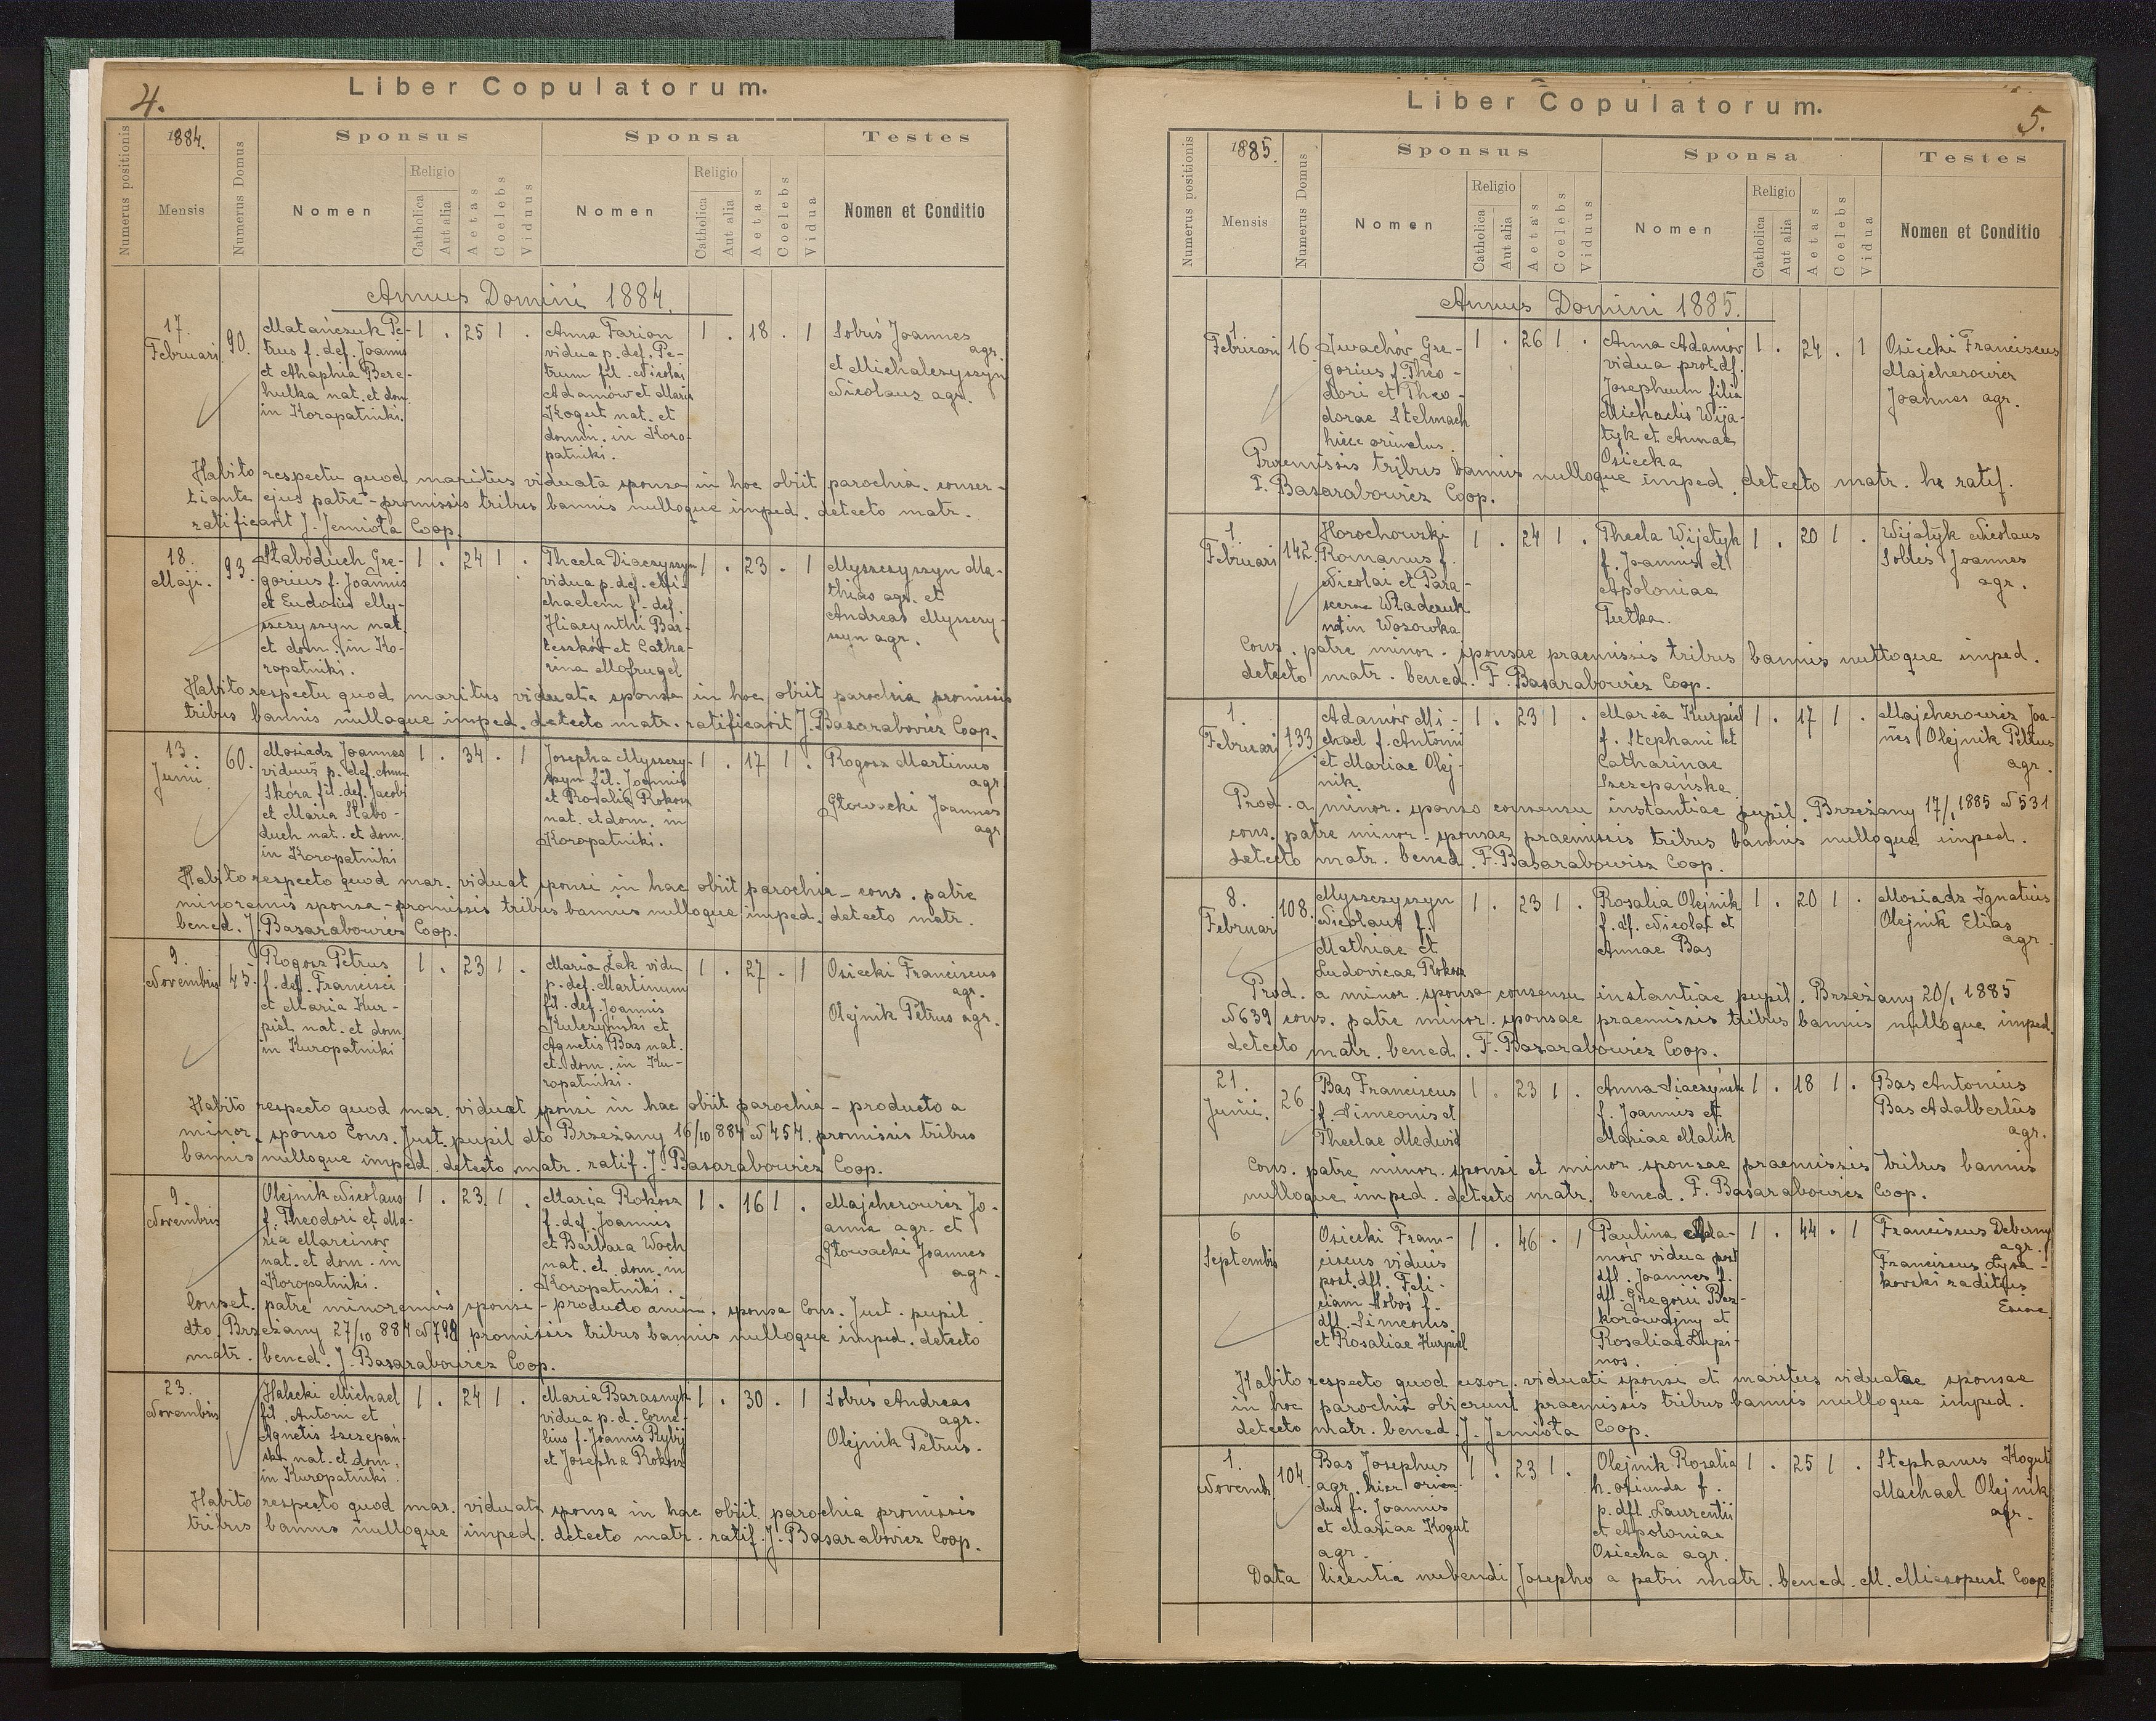 4.
Liber Copulatorum.
Numerus positionis
1884.
Mensis
Numerus Domus
Sponsus
Nomen
Religio
Catholica
Aut alia
Aetas
Coelebs
Viduus
Sponsa
Nomen
Religio
Catholica
Aut alia
Aetas
Coelebs
Vidua
Testes
Nomen et Conditio
Annus Domini 1884.
17.
Februari
90.
Matańczuk Pe-
trus f. def. Joannis
et Ahaphia Bere-
hulka nat. et dom.
in Koropatniki.
1 . 25 1 .
Anna Farion
vidua p. def. Pe-
trum fil. Nicolai
Adamów et Maria
Kogut nat. et
domin. in Koro-
patniki.
1 . 18 . 1
Sobuś Joannes
agr.
et Michalczyszyn
Nicolaus agr.
Habito respectu quod maritus viduata sponsa in hoc obiit parochia. conser-
tiante ejus patre - promissis tribus bannis nulloque imped. detecto matr.
ratificavit J. Jemioła Coop.
18.
Maji.
93.
Słaboduch Gre-
gorius f. Joannis
et Eudosia My-
szczyszyn nat.
et dom. in Ko-
ropatniki.
1 . 24 1 .
Thecla Diaczyszyn
vidua p. def. Mi-
chaelem f. def.
Hiacynthi Bar-
teszkót et Catha-
rina Mofrugel
1 . 23 . 1
Myszczyszyn Ma-
thias agr. et
Andreas Myszczy-
szyn agr.
Habito respectu quod maritus viduata sponsa in hoc obiit parochia promissis
tribus bannis nulloque imped. detecto matr. ratificavit J. Basarabovicz Coop.
13.
Junii
60.
Mosiadz Joannes
viduus p. def. Ann
Skóra fil. def. Jacobi
et Maria Słabo-
duch nat. et dom.
in Koropatniki
1 . 34 . 1
Josepha Myszczy-
szyn fil. Joannis
et Rosalia Rokosz
nat. et dom. in
Koropatniki.
1 . 17 1 .
Rogosz Martinus
agr
Głowacki Joannes
agr
Habito respecto quod mar. viduat sponsi in hac obiit parochia - cons. patre
minorennis sponsa - promissis tribus bannis nulloque imped. detecto matr.
bened. J. Basarabowicz Coop.
9.
Novembris
45.
Rogosz Petrus
f. def. Francisci
et Maria Kur-
piel nat. et dom
in Kuropatniki
1 . 23 1 .
Maria Łak vidu
p. def. Martinum
fil. def. Joannis
Kulczyński et
Agnetis Bas nat.
et dom. in Ku-
ropatniki.
1 . 27 . 1
Osiecki Franciscus
agr.
Olejnik Petrus agr.
Habito respecto quod mar. viduat sponsi in hac obiit parochia - producto a
minor. sponso Cons. Just. pupil dto Brzeżany 16/10 884 N 457. promissis tribus
bannis nulloque imped. detecto matr. ratif. J. Basarabowicz Coop.
9.
Novembris
Olejnik Nicolaus
f. Theodori et Ma-
ria Marcinow
nat. et dom. in
Koropatniki.
1 . 23. 1 .
Maria Rokosz
f. def. Joannis
et Barbara Woch
nat. et dom. in
Koropatniki.
1 . 16 1 .
Majcherowicz Jo-
anna agr. et
Głowacki Joannes
agr.
Conset. patre minorennis sponsi - producto a min. sponsa Cons. Just. pupil
dto. Brzeżany 27/10 884 N 798 promissis tribus bannis nulloque imped. detecto
matr. bened. J. Basarabowicz Coop.
23.
Novembris
Halecki Michael
fil. Antoni et
Agnetis Szczepań-
ska nat. et dom.
in Kuropatniki.
1 . 24 1 .
Maria Barasnyk
vidua p. d. Corne-
lius f. Joannis Rybij
et Josepha Rokosz
1 . 30 . 1
Sobuś Andreas
agr.
Olejnik Petrus.
Habito respecto quod mar. viduata sponsa in hac obiit parochia promissis
tribus bannis nulloque imped. detecto matr. ratif. J. Basarabovicz Coop.
5.
Liber Copulatorum.
Numerus positionis
1885.
Mensis
Numerus Domus
Sponsus
Nomen
Religio
Catholica
Aut alia
Aetas
Coelebs
Viduus
Sponsa
Nomen
Religio
Catholica
Aut alia
Aetas
Coelebs
Vidua
Testes
Nomen et Conditio
Annus Domini 1885.
1.
Februari
16.
Iwachów Gre-
gorius f. Theo-
dori et Theo-
dorae Stelmach
hicce oriundus.
1 . 26 1 .
Anna Adamów
vidua prot. df.
Josephum filia
Michaelis Wija-
tyk et Annae
Osiecka
1 . 24 . 1
Osiecki Franciscus
Majcherowicz
Joannes agr.
Praemissis tribus bannis nulloque imped. detecto matr. hr ratif.
F. Basarabowicz Coop.
1.
Februari
142.
Horochowski
Romanus f.
Nicolai et Para-
scevae Władczuk
nat in Wozowka
1 . 24 1 .
Thecla Wijatyk
f. Joannis et
Apoloniae
Tutka.
1 . 20 1 .
Wijatyk Nicolaus
Sobés Joannes
agr.
Cons. patre minor. sponsae praemissis tribus bannis nulloque imped.
detecto matr. bened. F. Basarabowicz Coop.
1.
Februari
133
Adamów Mi-
chael f. Antonii
et Mariae Olej-
nik.
1 . 23 1 .
Maria Kurpiel
f. Stephani et
Catharinae
Szczepańska
1 . 17 1 .
Majcherowicz Joa-
nnes Olejnik Petrus
agr.
Prod. a minor. sponso consensu instantiae pupil. Brzeżany 17/1 1885 N 531
cons. patre minor. sponsae praemissis tribus bannis nulloque imped.
detecto matr. bened. F. Basarabowicz Coop.
8.
Februari
108.
Myszczyszyn
Nicolaus f.
Mathiae et
Ludovicae Rokosz
1 . 23 1 .
Rosalia Olejnik
f. df. Nicolai et
Annae Bas
1 . 20 1 .
Mosiadz Ignatius
Olejnik Elias
agr.
Prod. a minor sponsa consensu instantiae pupil. Brzeżany 20/1 1885
N 639 cons. patre minor. sponsae praemissis tribus bannis nulloque imped.
detecto matr. bened. F. Basarabowicz Coop.
21.
Junii.
26.
Bas Franciscus
f. Simeonis et
Theclae Medwid
1 . 23 1 .
f. Joannis et
Mariae Malik
1 . 18 1 .
Bas Antonius
Bas Adalbertus
agr.
Cons. patre minor. sponsi et minor sponsae praemissis tribus bannis
nulloque imped. detecto matr. bened. F. Basarabowicz Coop.
6
Septembris
Osiecki Fran-
ciscus viduus
post. dfl. Feli-
ciam Hobos f.
dfl. Simeonis
et Rosaliae Kurpiel
1 . 46 . 1
Paulina Ada-
mów vidua post
dfl. Joannes f.
dfl. Gregorii Bez-
korowajny et
Rosaliae Lupi-
nos.
1 . 44 . 1
Franciscus Deberny
agr.
Franciscus Łysa-
kovski raditus
Habito respecto quod uxor. viduati sponsi et maritus viduatae sponsae
in hoc parochia obierunt praemissis tribus bannis nulloque imped.
detecto matr. bened. J. Jemioła Coop.
1.
Novemb.
104.
Bas Josephus
agr. hier oriun-
dus f. Joannis
et Mariae Kogut
agr.
1 . 23 1 .
Olejnik Rosalia
h. oriunda f.
p. dfl. Laurentii
et Apoloniae
Osiecka agr.
1 . 25 1 .
Stephanus Kogut
Machael Olejnik
agr.
Data licentia nubendi Josepho a patri matr. bened. M. Miesopust Coop